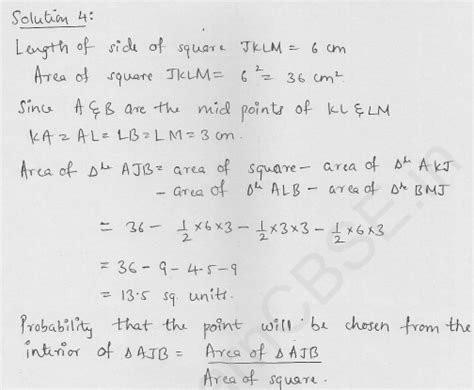 Solution 4:
Length of side of square JKLM = 6 cm
Area of square JKLM = 6² = 36 cm²
Since A & B are the mid points of KL & LM
KA = AL = LB = LM = 3 cm.
Area of Δle AJB = area of square – area of Δle AKJ
– area of Δle ALB – area of Δle BMJ
= 36 – 1/2 × 6 × 3 – 1/2 × 3 × 3 – 1/2 × 6 × 3
= 36 – 9 – 4.5 – 9
= 13.5 sq. units.
Probability that the point will be chosen from the
interior of ΔAJB = Area of ΔAJB / Area of square.